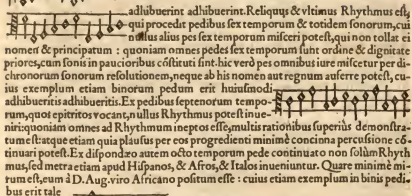 adhibuerint adhibuerint. Reliquus & vltimus Rhythmus est,
qui procedit pedibus sex temporum & totidem sonorum, cui
nullus alius pes sex temporum misceri potest, qui non tollat ei
nomen & principatum : quoniam omnes pedes sex temporum sunt ordine & dignitate
priores, cum sonis in paucioribus cõstituti sint. hic verò pes omnibus iure miscetur per di-
chronorum sonorum resolutionem, neque ab his nomen aut regnum auferre potest, cu-
ius exemplum etiam binorum pedum erit huiusmodi
adhibueritis adhibueritis. Ex pedibus septenorum tempo-
rum, quos epitritos vocant, nullus Rhythmus potest inue-
niri: quoniam omnes ad Rhythmum ineptos esse, multis rationibus superiùs demonstra-
tum est: atque etiam quia plausus per eos progredienti minimè concinna percussione cõ-
tinuari potest. Ex dispondæo autem octo temporum pede continuato, non solùm Rhyth-
mus, sed metra etiam apud Hispanos, & Afros, & Italos inueniuntur. Quare minimè mi-
rum est, eum à D. Aug. viro Africano positum esse : cuius etiam exemplum in binis pedi-
bus erit tale